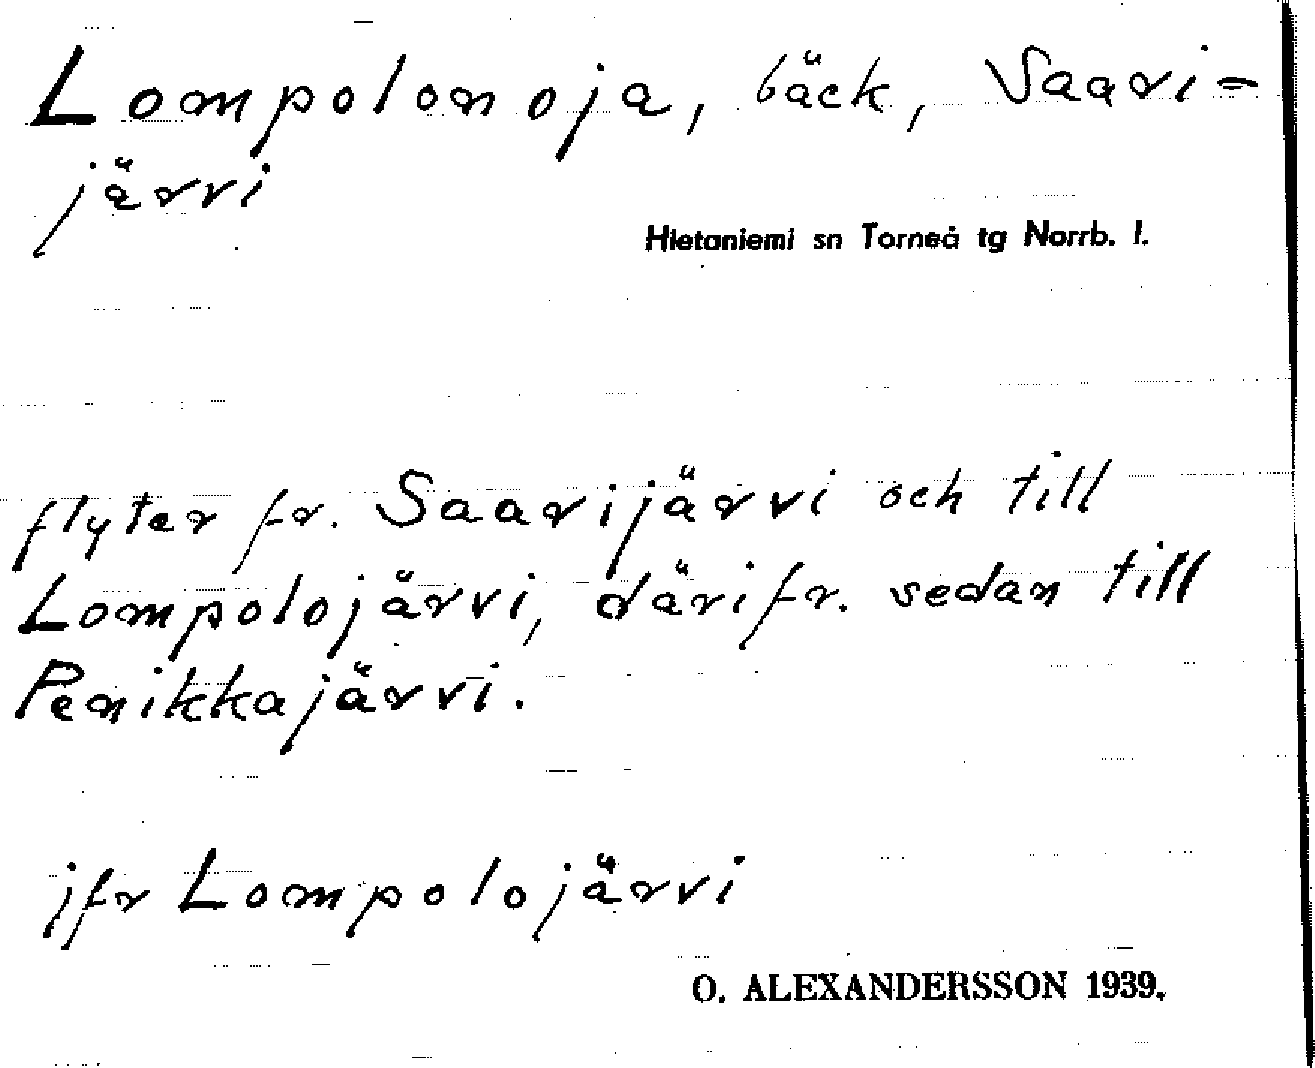 Lompolonoja, bäck, Saari-
järvi
Hietaniemi sn Torneå tg Norrb. l.
flyter fr. Saarijärvi och till
Lompolojärvi, därifr. sedan till
Penikkajärvi.
jfr Lompolojärvi
O. ALEXANDERSSON 1939.